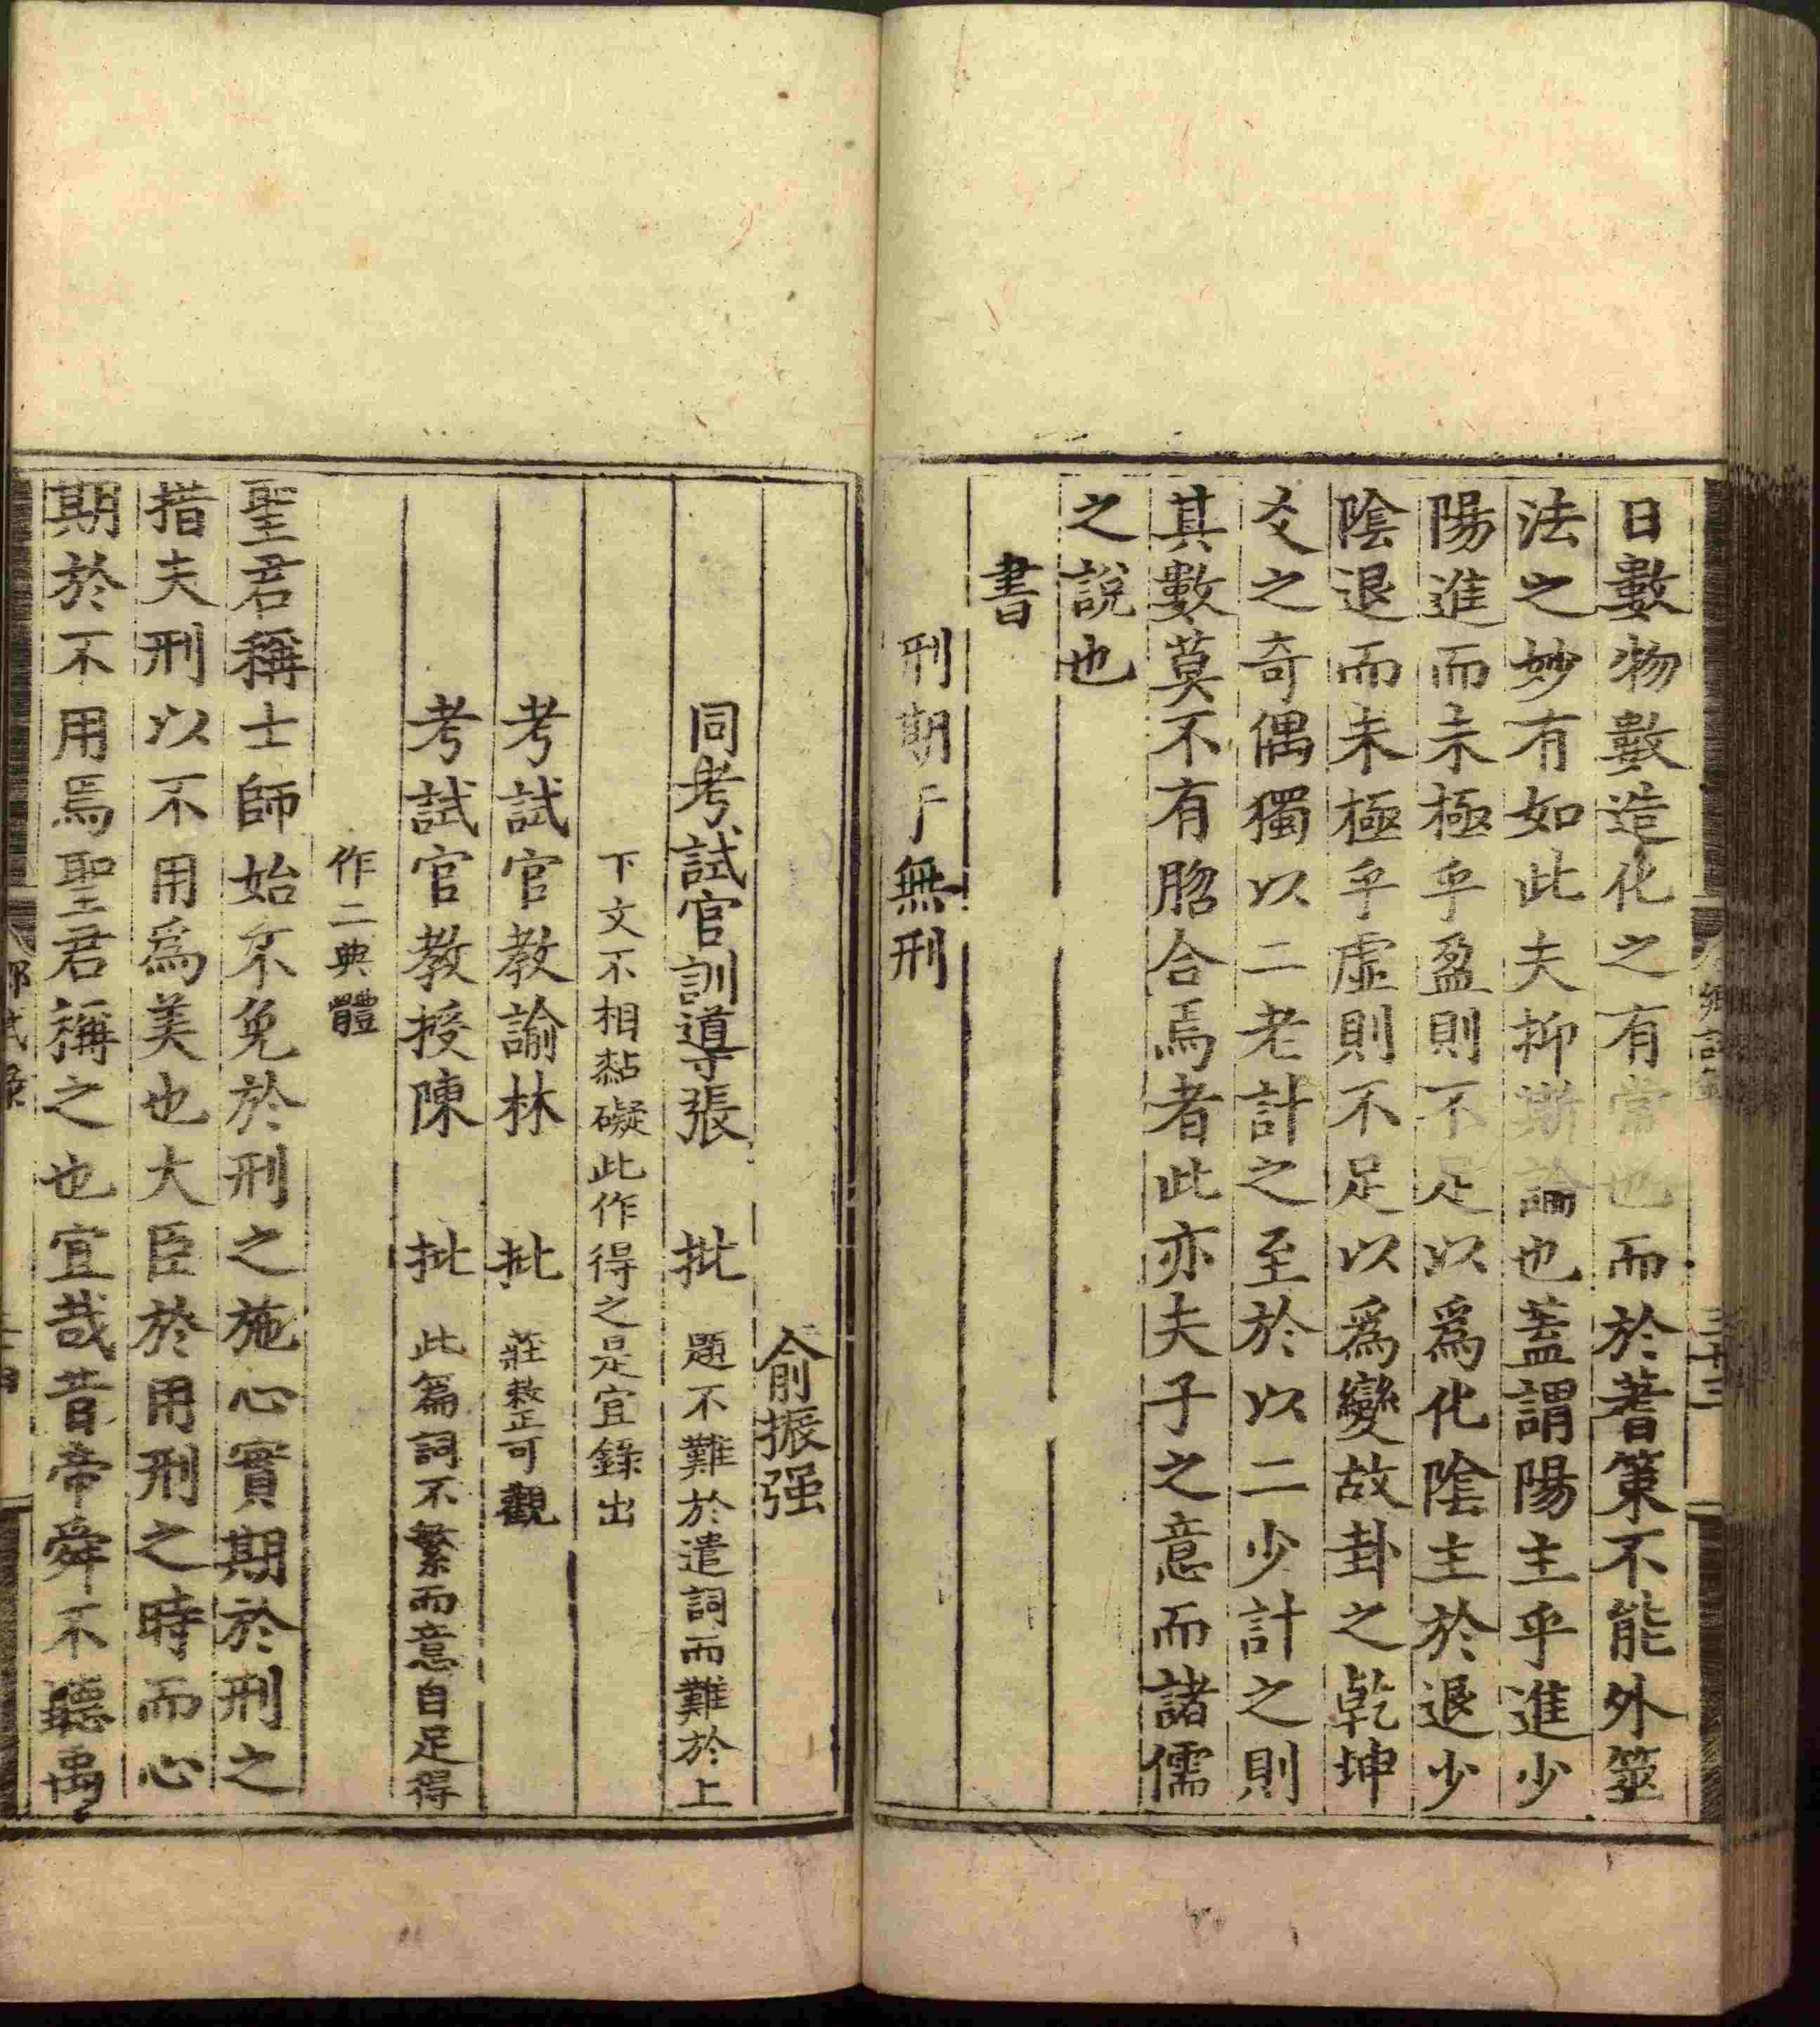 日數物數造化之有常也而於蓍策不能外筮
法之妙有如此夫抑嘗論也蓋謂陽主乎進少
陽進而未極乎盈則不足以爲化陰主於退少
陰退而未極乎虛則不足以爲變故卦之乾坤
爻之奇偶獨以二老計之至於以二少計之則
其數莫不有脗合焉者此亦夫子之意而諸儒
之說也
書
刑期于無刑
俞振强
同考試官訓導張 批 題不難於遣詞而難於上
下文不相黏礙此作得之是宜錄出
考試官教諭林 批 莊整可觀
考試官教授陳 批 此篇詞不繁而意自足得
作二典體
聖君稱士師始不免於刑之施心實期於刑之
措夫刑以不用爲美也大臣於用刑之時而心
期於不用焉聖君稱之也宜哉昔帝舜不聽禹